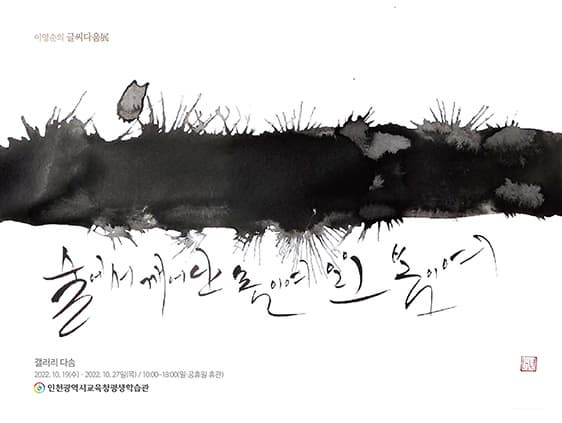 이명순의 글씨다움展
술에서 깨어난 봄이여
갤러리 다솜
2022. 10. 19(수) - 2022. 10. 27일(목) / 10:00~18:00(일·공휴일 휴관)
인천광역시교육청평생학습관